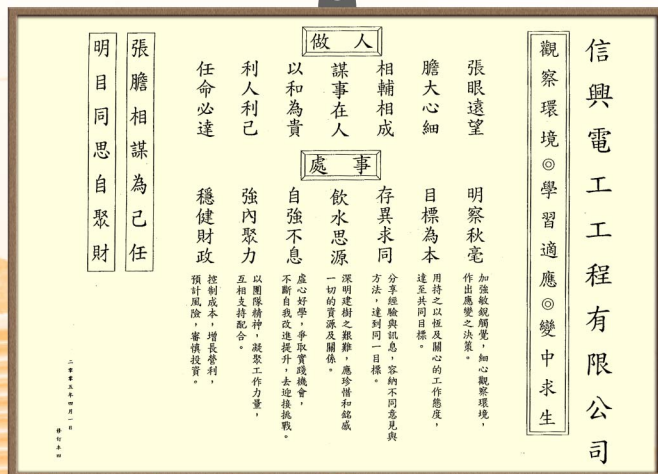 信興電工工程有限公司
觀察環境◎學習適應◎變中求生
做人
張眼遠望
膽大心細
相輔相成
謀事在人
以和為貴
利人利己
任命必達
處事
明察秋毫
加強敏銳觸覺，細心觀察環境，
作出應變之決策。
目標為本
用持之以恆及關心的工作態度，
達至共同目標。
存異求同
分享經驗與訊息，容納不同意見與
方法，達到同一目標。
飲水思源
深明建樹之艱難，應珍惜和銘感
一切的資源及關係。
自強不息
虛心好學，爭取實踐機會，
不斷自我改進提升，去迎接挑戰。
強內聚力
以團隊精神，凝聚工作力量，
互相支持配合。
穩健財政
控制成本，增長營利，
預計風險，審慎投資。
張膽相謀為己任
明目同思自聚財
二零零五年四月一日
修訂本四